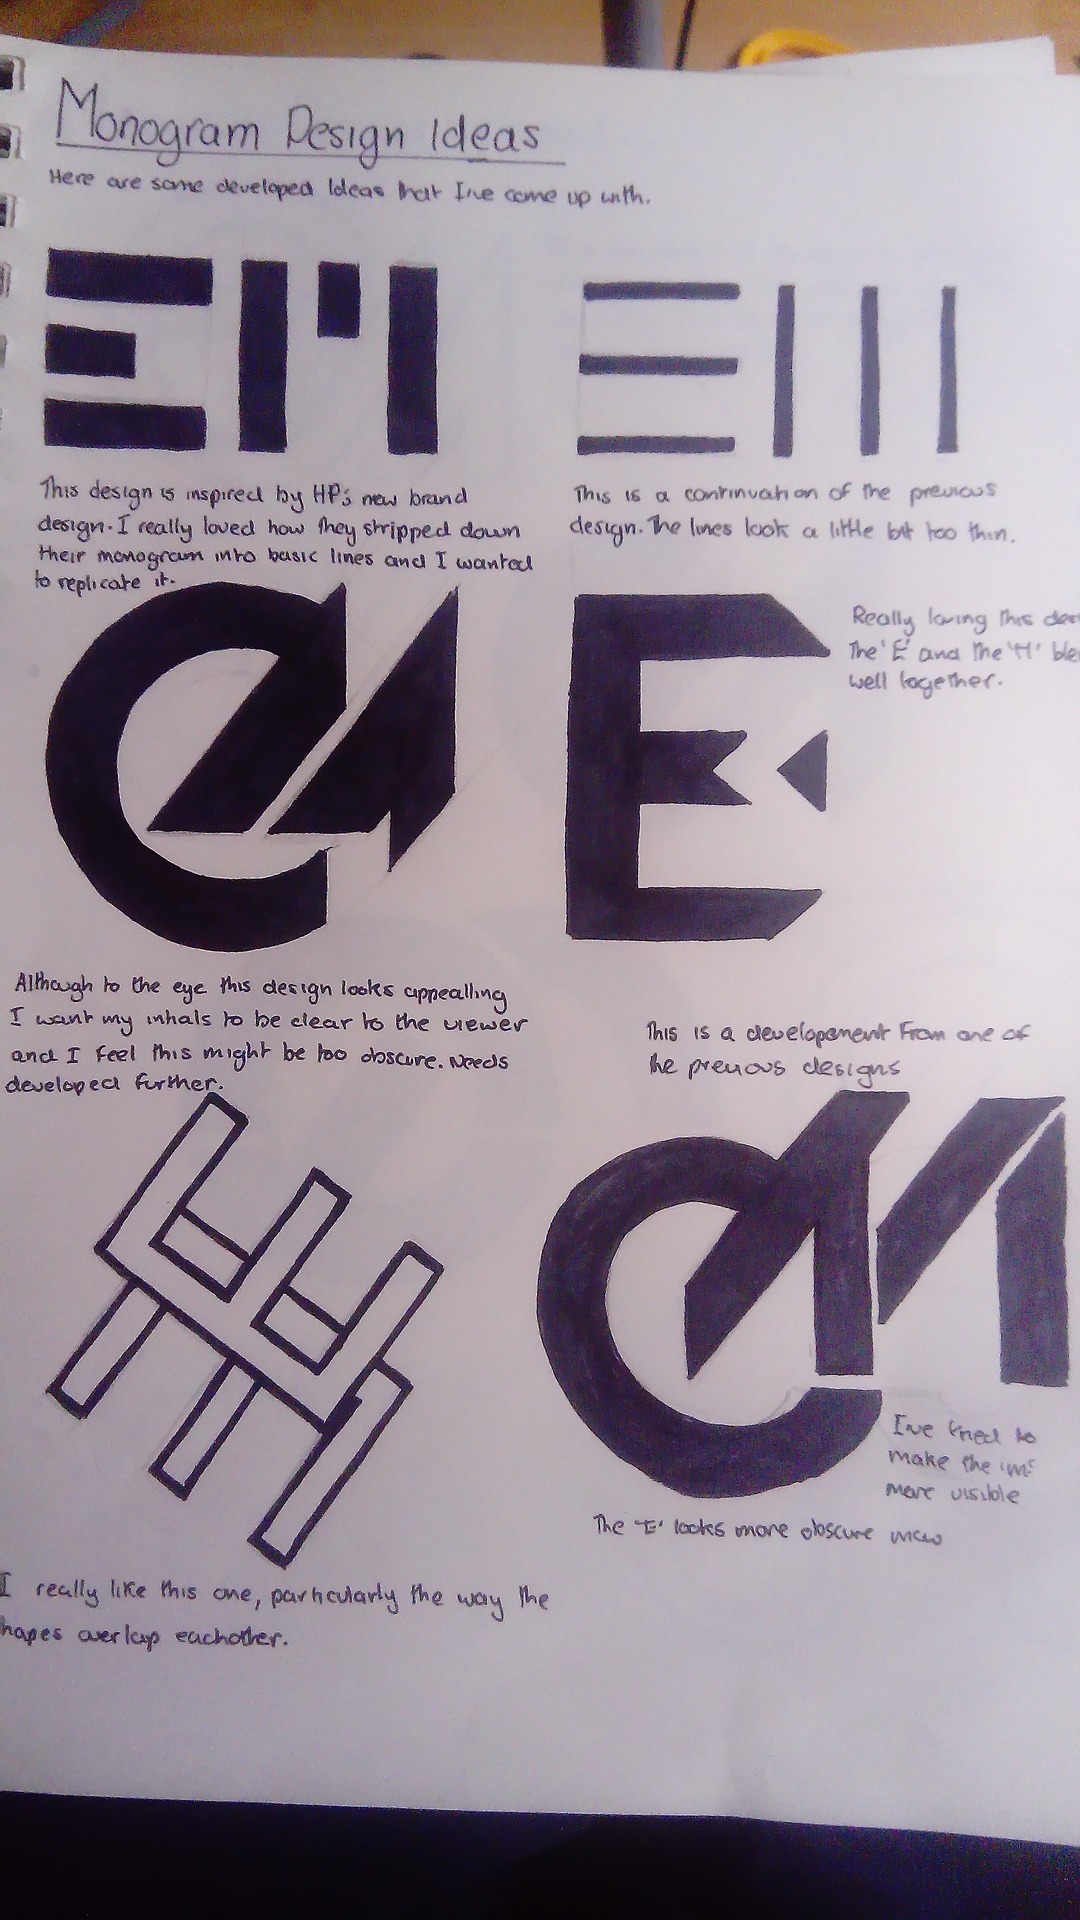 Monogram Design Ideas
Here are some developed Ideas that I've come up with.
EM
EM
This design is inspired by HP's new brand
design. I really loved how they stripped down
their monogram into basic lines and I wanted
to replicate it.
This is a continuation of the previous
design. The lines look a little bit too thin.
Really loving this
The 'E' and the 'M'
well together.
Although to the eye this design looks appealling
I want my initials to be clear to the viewer
and I feel this might be too obscure. Needs
developed further.
This is a developement From one of
the previous designs
I've tried to
make the 'm'
more visible
The 'E' looks more obscure now
I really like this one, particularly the way the
hapes overlap eachother.